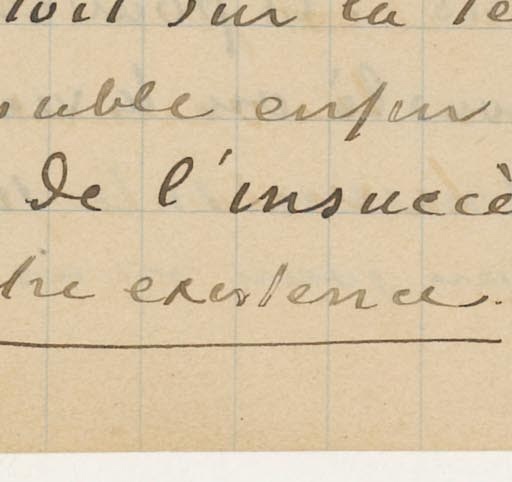 toit sur la te
uable enfin
de l'insuccè
tre existence.